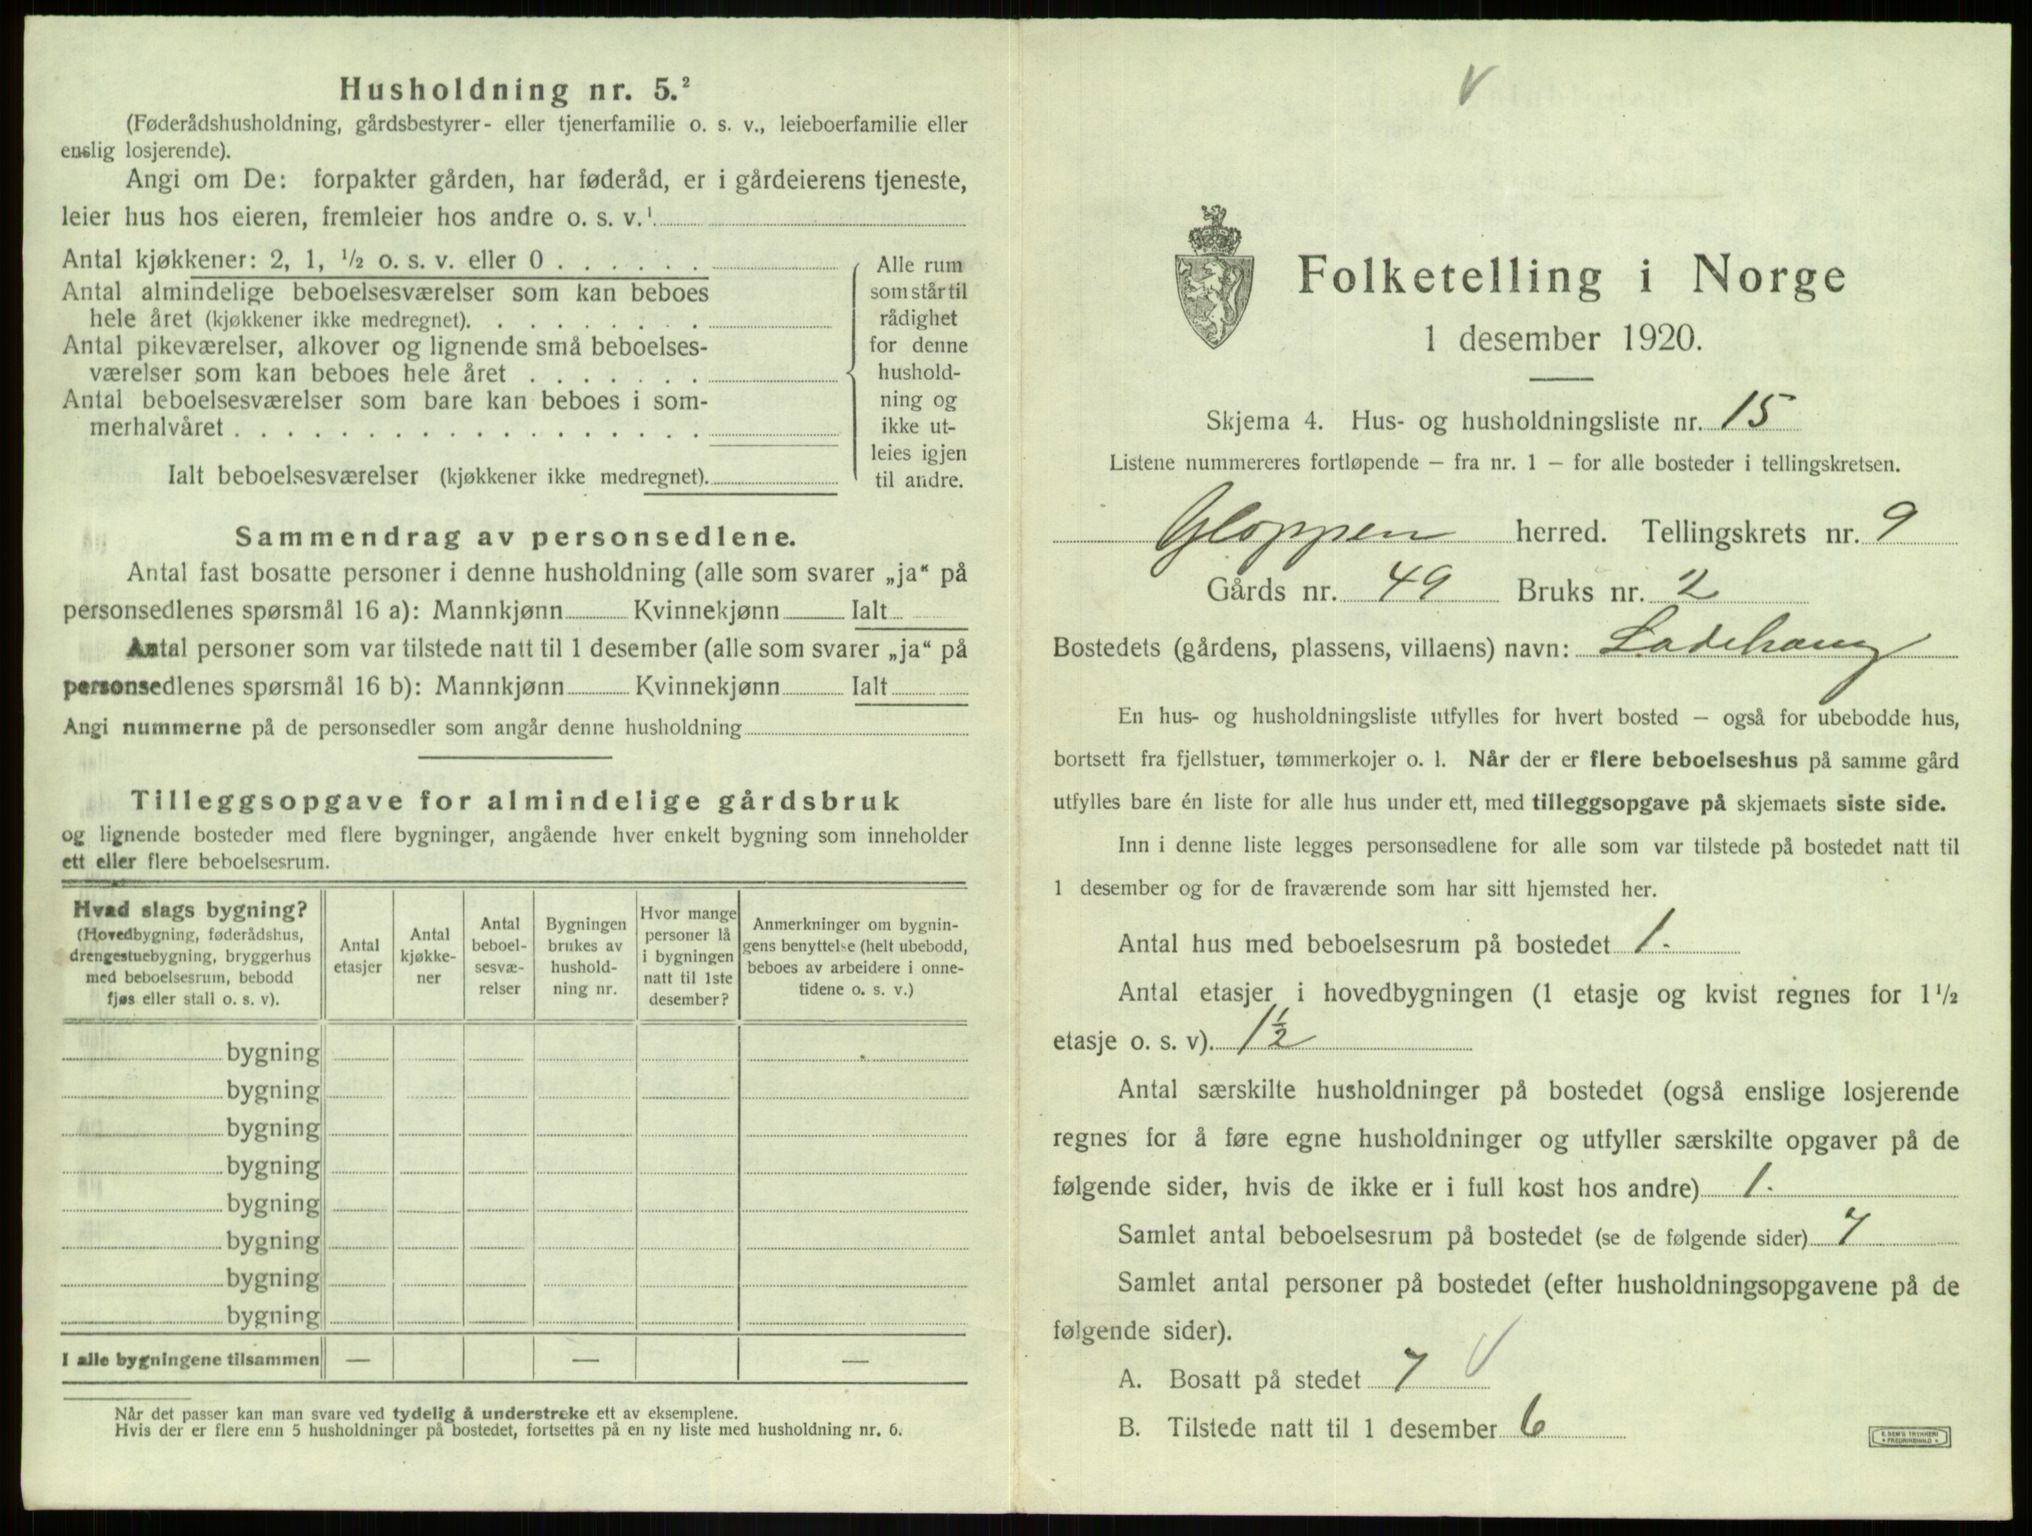 Husholdning nr. 5.²
(Føderådshusholdning, gårdsbestyrer- eller tjenerfamilie o. s. v., leieboerfamilie eller
enslig losjerende).
Angi om De: forpakter gården, har føderåd, er i gårdeierens tjeneste,
leier hus hos eieren, fremleier hos andre o. s. v.¹
Antal kjøkkener: 2, 1, ½ o. s. v. eller 0 . . . . . .
Antal almindelige beboelsesværelser som kan beboes
hele året (kjøkkener ikke medregnet). . . . . . . . .
Antal pikeværelser, alkover og lignende små beboelses-
værelser som kan beboes hele året . . . . . . .
Antal beboelsesværelser som bare kan beboes i som-
merhalvåret . . . . . . . . . . . . . . . . . .
Ialt beboelsesværelser (kjøkkener ikke medregnet).
Alle rum
som står til
rådighet
for denne
hushold-
ning og
ikke ut-
leies igjen
til andre.
Sammendrag av personsedlene.
Antal fast bosatte personer i denne husholdning (alle som svarer „ja“ på
personsedlenes spørsmål 16 a): Mannkjønn Kvinnekjønn Ialt
Antal personer som var tilstede natt til 1 desember (alle som svarer „ja“ på
personsedlenes spørsmål 16 b): Mannkjønn Kvinnekjønn Ialt
Angi nummerne på de personsedler som angår denne husholdning
Tilleggsopgave for almindelige gårdsbruk
og lignende bosteder med flere bygninger, angående hver enkelt bygning som inneholder
ett eller flere beboelsesrum.
Hvad slags bygning?
(Hovedbygning, føderådshus,
drengestuebygning, bryggerhus
med beboelsesrum, bebodd
fjøs eller stall o. s. v).
Antal
etasjer
Antal
kjøkke-
ner
Antal
beboel-
sesvæ-
relser
Bygningen
brukes av
hushold-
ning nr.
Hvor mange
personer lå
i bygningen
natt til 1ste
desember?
Anmerkninger om bygnin-
gens benyttelse (helt ubebodd,
beboes av arbeidere i onne-
tidene o. s. v.)
bygning
bygning
bygning
bygning
bygning
bygning
bygning
bygning
I alle bygningene tilsammen — — —
Når det passer kan man svare ved tydelig å understreke ett av eksemplene.
Hvis der er flere enn 5 husholdninger på bostedet, fortsettes på en ny liste med husholdning nr. 6.
V
Folketelling i Norge
1 desember 1920.
Skjema 4. Hus- og husholdningsliste nr. 15
Listene nummereres fortløpende – fra nr. 1 – for alle bosteder i tellingskretsen.
Gloppen herred. Tellingskrets nr. 9
Gårds nr. 49 Bruks nr. 2
Bostedets (gårdens, plassens, villaens) navn: Ladehaug
En hus- og husholdningsliste utfylles for hvert bosted – også for ubebodde hus,
bortsett fra fjellstuer, tømmerkojer o. l. Når der er flere beboelseshus på samme gård
utfylles bare én liste for alle hus under ett, med tilleggsopgave på skjemaets siste side.
Inn i denne liste legges personsedlene for alle som var tilstede på bostedet natt til
1 desember og for de fraværende som har sitt hjemsted her.
Antal hus med beboelsesrum på bostedet 1.
Antal etasjer i hovedbygningen (1 etasje og kvist regnes for 1½
etasje o. s. v). 1½
Antal særskilte husholdninger på bostedet (også enslige losjerende
regnes for å føre egne husholdninger og utfyller særskilte opgaver på de
følgende sider, hvis de ikke er i full kost hos andre) 1.
Samlet antal beboelsesrum på bostedet (se de følgende sider) 7
Samlet antal personer på bostedet (efter husholdningsopgavene på de
følgende sider).
A. Bosatt på stedet 7 V
B. Tilstede natt til 1 desember 6
E. SEM'S TRYKKERI
FREDRIKSHALD